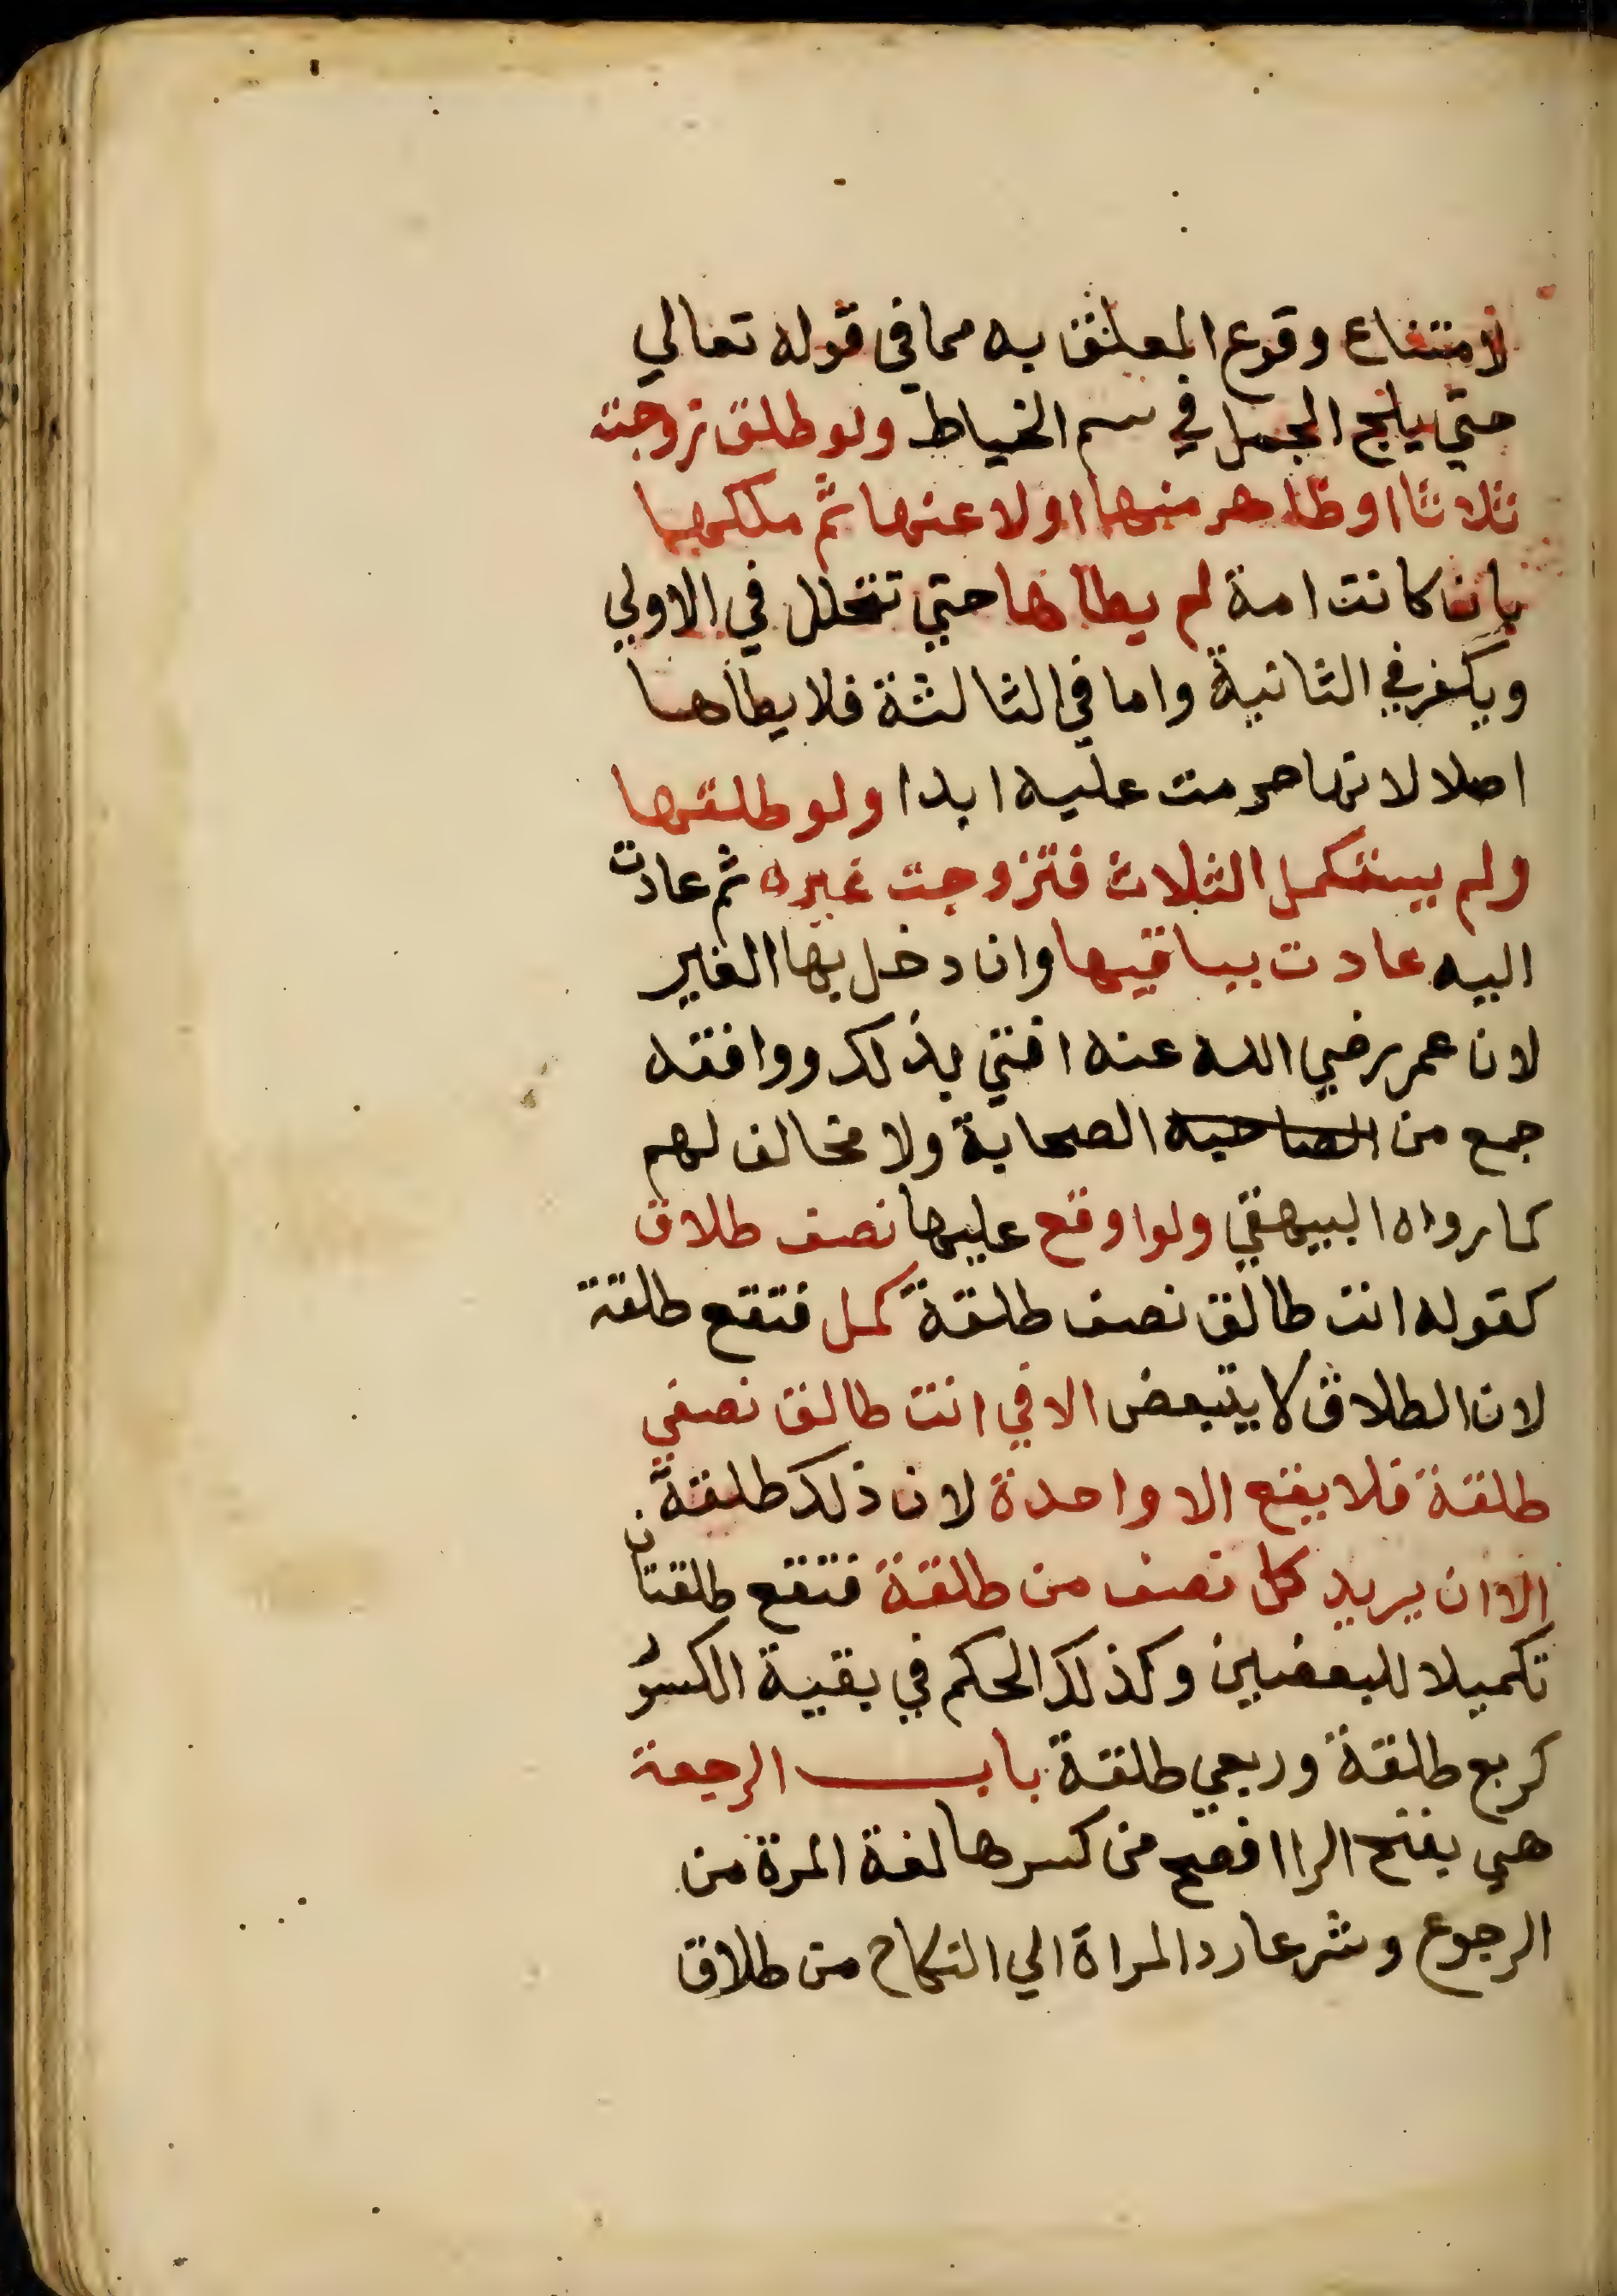 لامتناع وقوع المعلق به مما في قوله تعالي
حتي يلج الجمل في سم الخياط ولو طلق زوجته
ثلاثا او ظاهر منها او لاعنها ثم ملكها
بان كانت امة لم يطاها حتي تتحلل في الاولي
ويكفر في الثانية واما في الثالثة فلا يطاها
اصلا لانها حرمت عليه ابدا ولو طلقها
ولم يستكمل الثلاث فتزوجت غيره ثم عادت
اليه عادت بباقيها وان دخل بها الغير
لان عمر رضي الله عنه افتي بذلك ووافقه
جمع من الصاحبه الصحابة ولا مخالف لهم
كما رواه البيهقي ولو اوقع عليها نصف طلاق
كقوله انت طالق نصف طلقة كمل فتقع طلقة
لان الطلاق لا يتبعض الا في انت طالق نصفي
طلقة فلا يقع الا واحدة لان ذلك طلقة
الا ان يريد كل نصف من طلقة فتقع طلقتان
تكميلا للبعضين وكذلك الحكم في بقية الكسور
كربع طلقة وربعي طلقة باب الرجعة
هي بفتح الرا افصح من كسرها لغة المرة من
الرجوع وشرعا رد المراة الي النكاح من طلاق